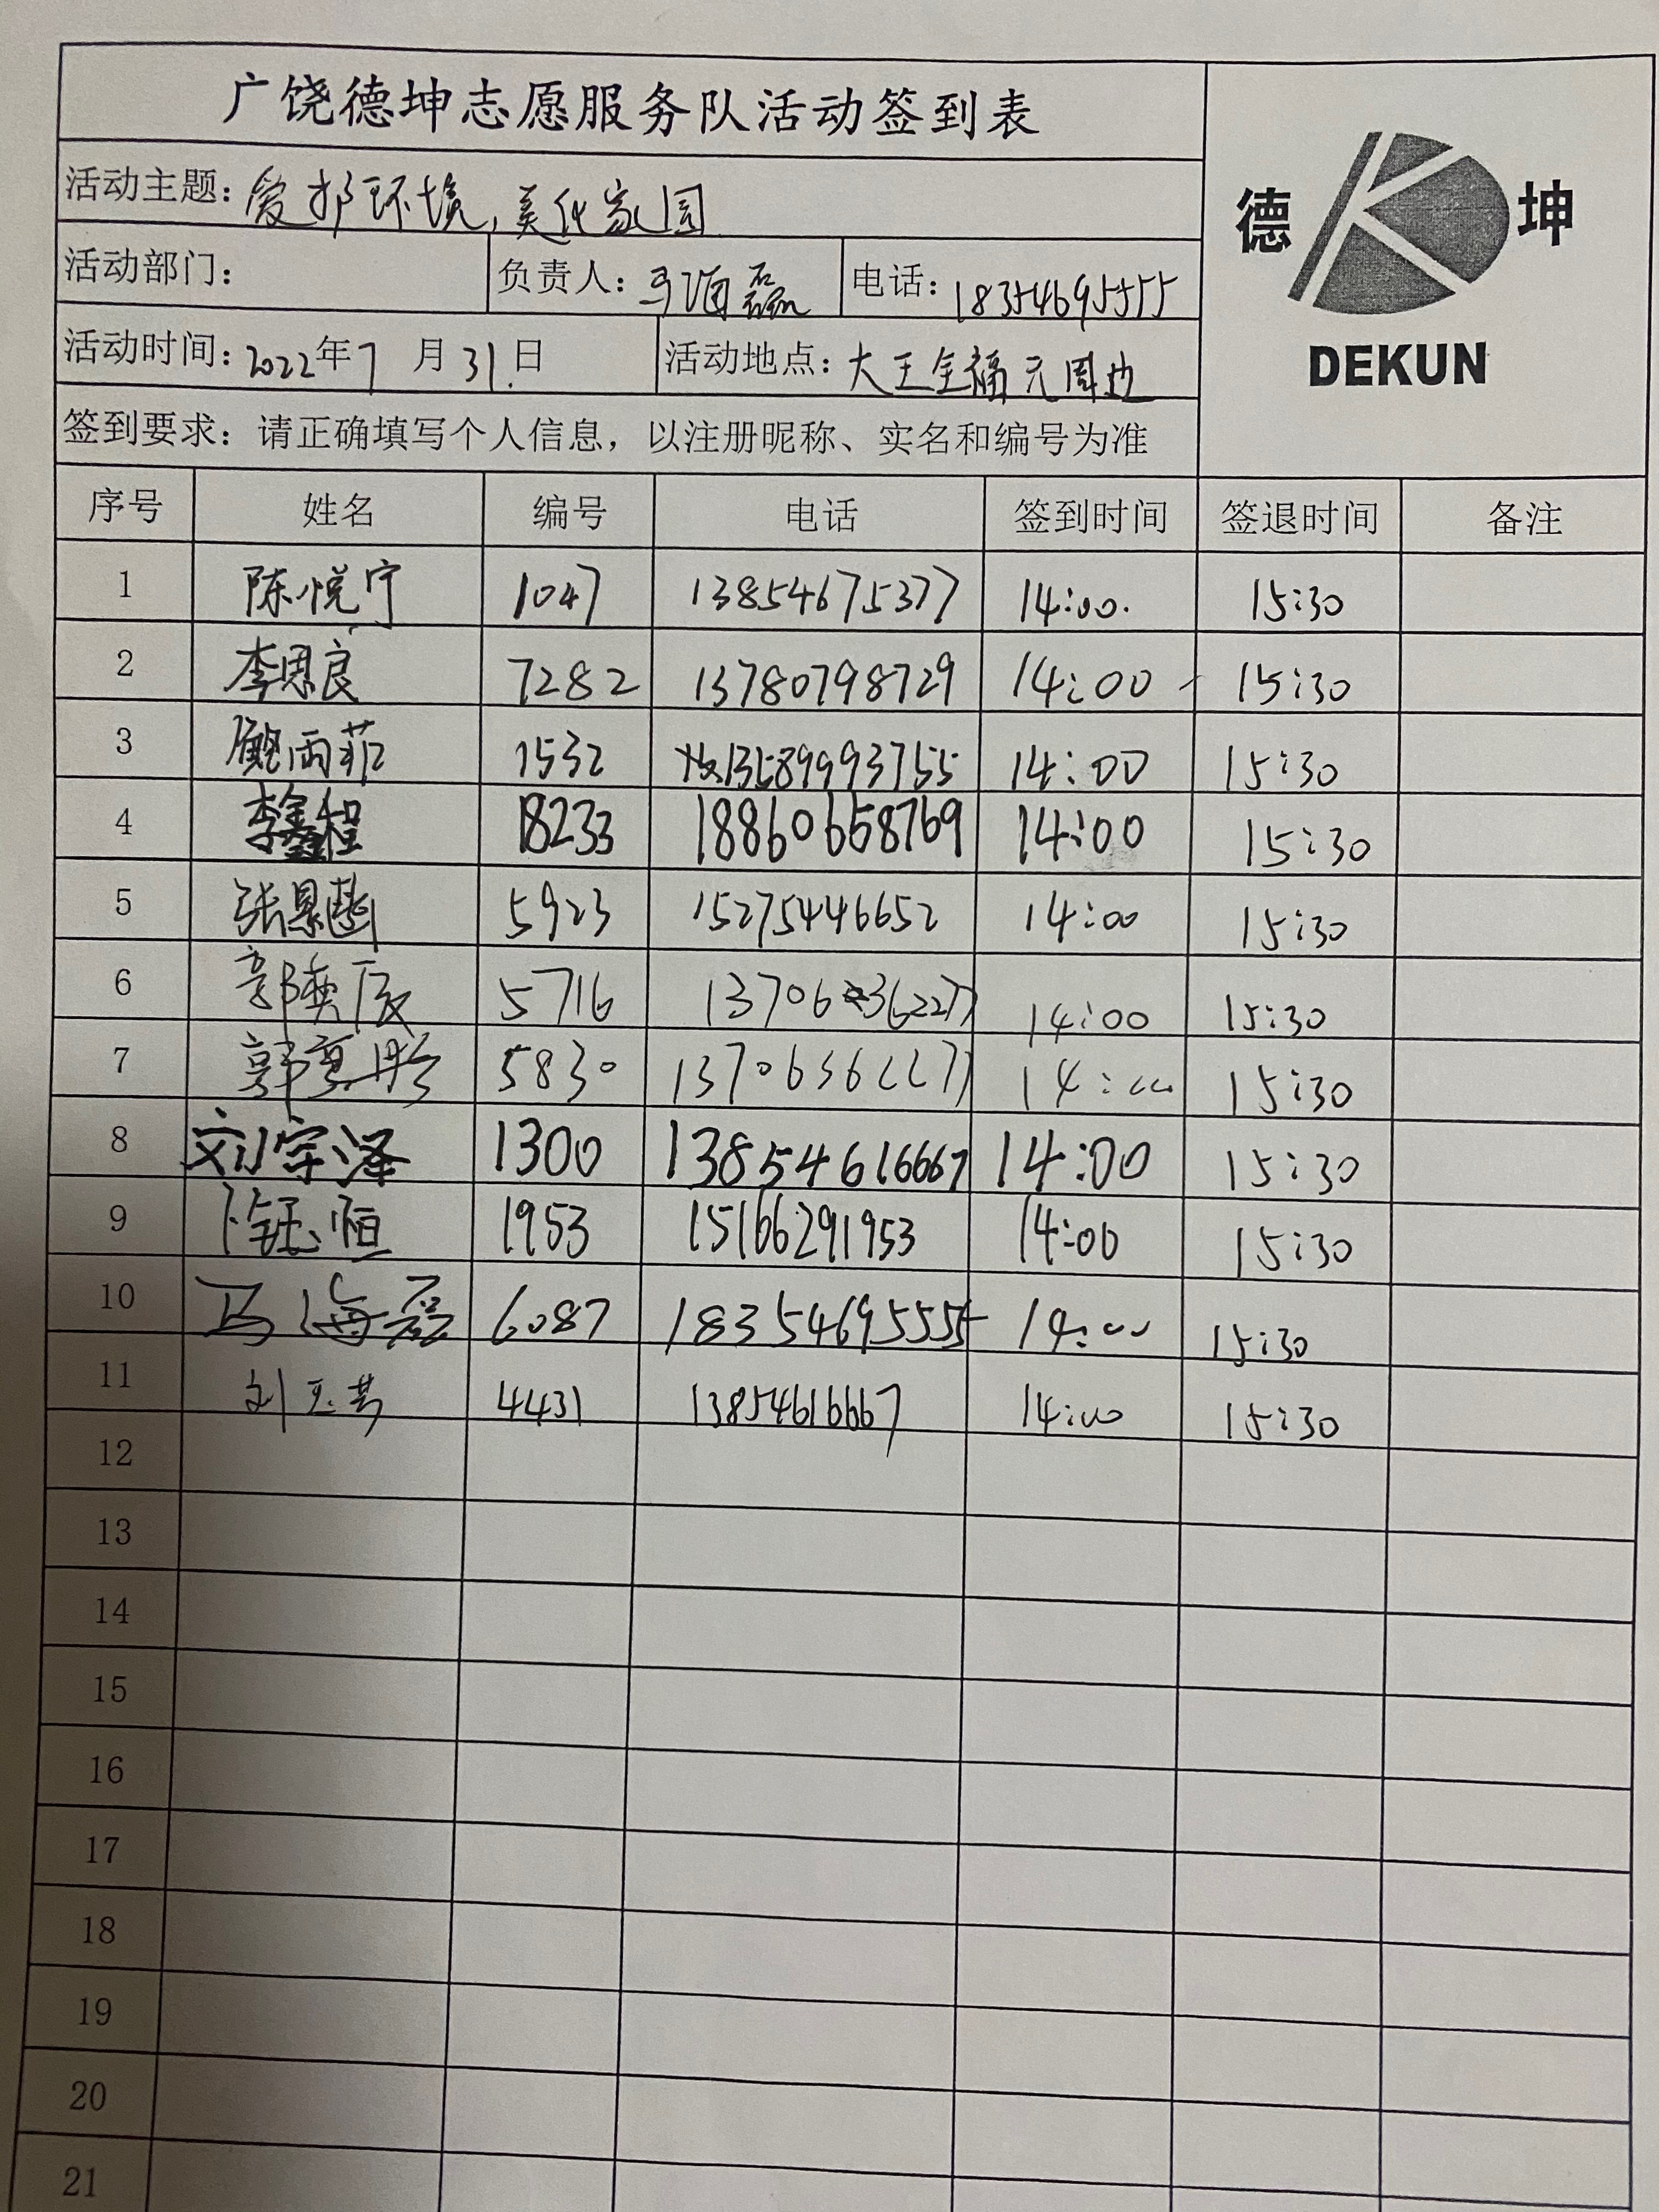 广饶德坤志愿服务队活动签到表
德 坤
DEKUN
活动主题：爱护环境，美化家园
活动部门： 负责人：马海磊 电话：18354695555
活动时间：2022年7月31日 活动地点：大王全福元周边
签到要求：请正确填写个人信息，以注册昵称、实名和编号为准
序号 姓名 编号 电话 签到时间 签退时间 备注
1 陈悦宁 1047 13854675377 14:00. 15:30
2 李思良 7282 13780798729 14:00 15:30
3 鲍雨菲 1532 13589993755 14:00 15:30
4 李鑫程 18233 18860658769 14:00 15:30
5 张景 5923 15275446652 14:00 15:30
6 郭奕辰 5716 13706362277 14:00 15:30
7 郭奕彤 5830 13706362277 14:00 15:30
8 刘宇泽 1300 13854616667 14:00 15:30
9 卞钰恒 1953 15166291953 14:00 15:30
10 马海磊 6087 18354695555 14:00 15:30
11 刘玉芳 4431 13854616667 14:00 15:30
12
13
14
15
16
17
18
19
20
21